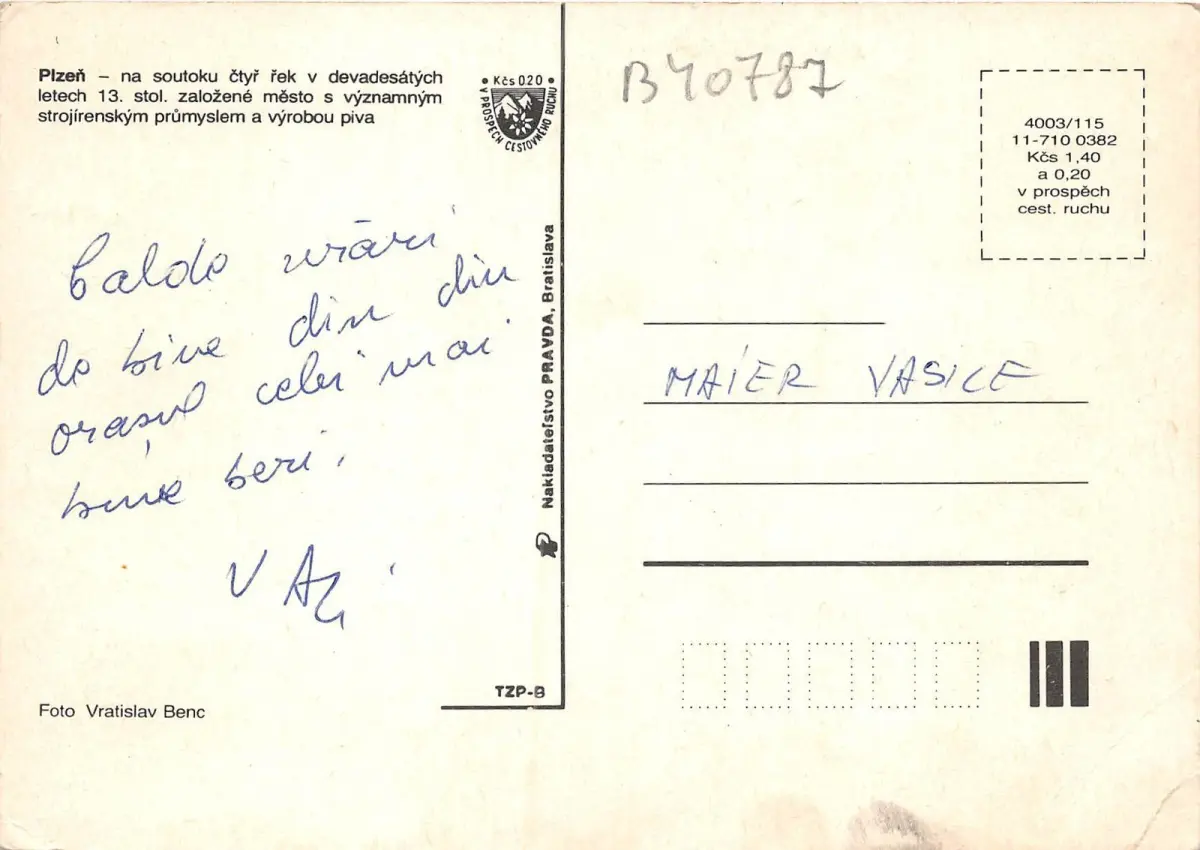 Plzeň – na soutoku čtyř řek v devadesátých
letech 13. stol. založené město s významným
strojírenským průmyslem a výrobou piva
• Kčs 020 •
V PROSPĚCH CESTOVNÉHO RUCHU
B40787
4003/115
11-710 0382
Kčs 1,40
a 0,20
v prospěch
cest. ruchu
Calde urări
de bine din din
orasul celei mai
bune beri.
Nakladateľstvo PRAVDA, Bratislava
MAIER VASILE
TZP-B
Foto Vratislav Benc